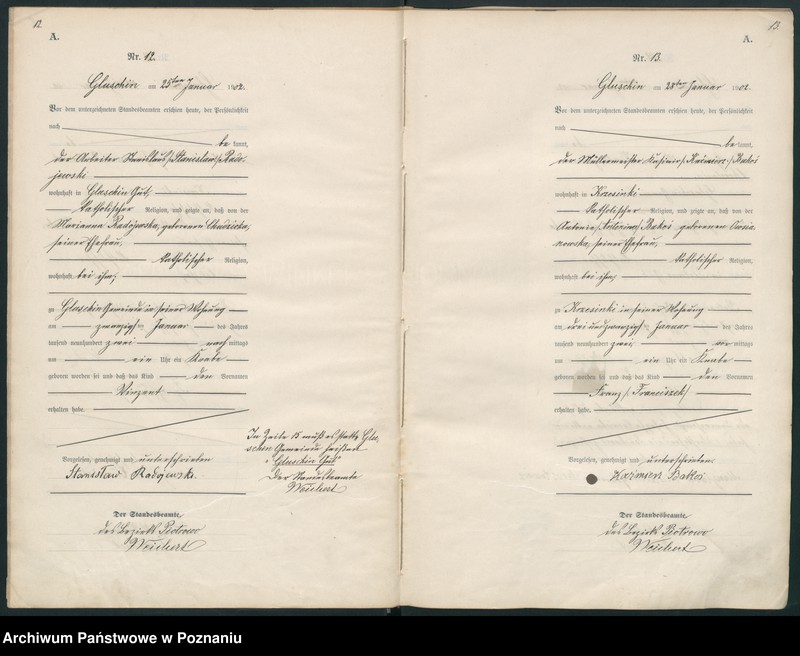 12
A.
Nr. 12.
Gluschin am 25ten Januar 1902.
Vor dem unterzeichneten Standesbeamten erschien heute, der Persönlichkeit
nach
be kannt,
der Arbeiter /Stanislaus/ Rado-
jewski
wohnhaft in Gluschin Gut,
katholischer Religion, und zeigte an, daß von der
Marianna Radojewska, geborenen
seiner Ehefrau,
katholischer Religion,
wohnhaft bei ihm,
zu Gluschin Gemeinde in seiner Wohnung
am zwanzigsten Januar des Jahres
tausend neunhundert zwei nach mittags
um ein Uhr ein Knabe
geboren worden sei und daß das Kind den Vornamen
Vinzent
erhalten habe.
Vorgelesen, genehmigt und unterschrieben
Stanisław Radojewski.
In Zeile 15 muß es statt Glu-
schin Gemeinde heißen
"Gluschin Gut"
Der Standesbeamte
Weichert
Der Standesbeamte.
des Bezirks Piotrowo
Weichert
13
A.
Nr. 13.
Gluschin am 28ten Januar 1902.
Vor dem unterzeichneten Standesbeamten erschien heute, der Persönlichkeit
nach
be kannt,
der Müllermeister Kasimir /Kazimierz/ Bakoś
wohnhaft in Krzesinki
katholischer Religion, und zeigte an, daß von der
Antonie /Antonina/ Bakoś geborenen
seiner Ehefrau,
katholischer Religion,
wohnhaft bei ihm,
zu Krzesinki in seiner Wohnung
am drei und zwanzigsten Januar des Jahres
tausend neunhundert zwei vor mittags
um ein Uhr ein Knabe
geboren worden sei und daß das Kind den Vornamen
Franz /Franciszek/
erhalten habe.
Vorgelesen, genehmigt und unterschrieben
Kazimierz Bakoś
Der Standesbeamte.
des Bezirks Piotrowo
Weichert
Archiwum Państwowe w Poznaniu